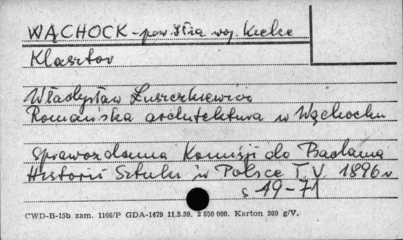 WĄCHOCK - pow. Iłża woj. Kielce
Klasztor
Władysław Łuszczkiewicz
Romańska architektura w Wąchocku
Sprawozdania Komisji do Badania
Historii Sztuki w Polsce T. V 1896 r
s 19-71
CWD-B-15b zam. 1106/P GDA-1479 11.5.59. 2 850 000. Karton 200 g/V.